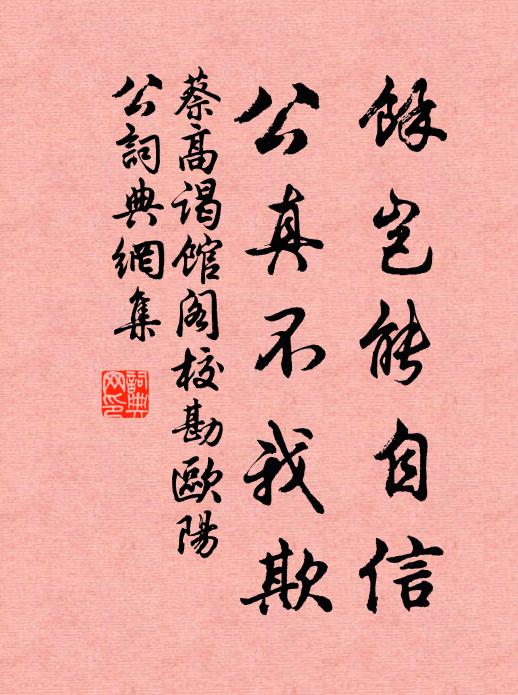 餘豈能自信
公真不我欺
蔡高謁館阁校勘歐陽
公詞典網集
詞典
网印